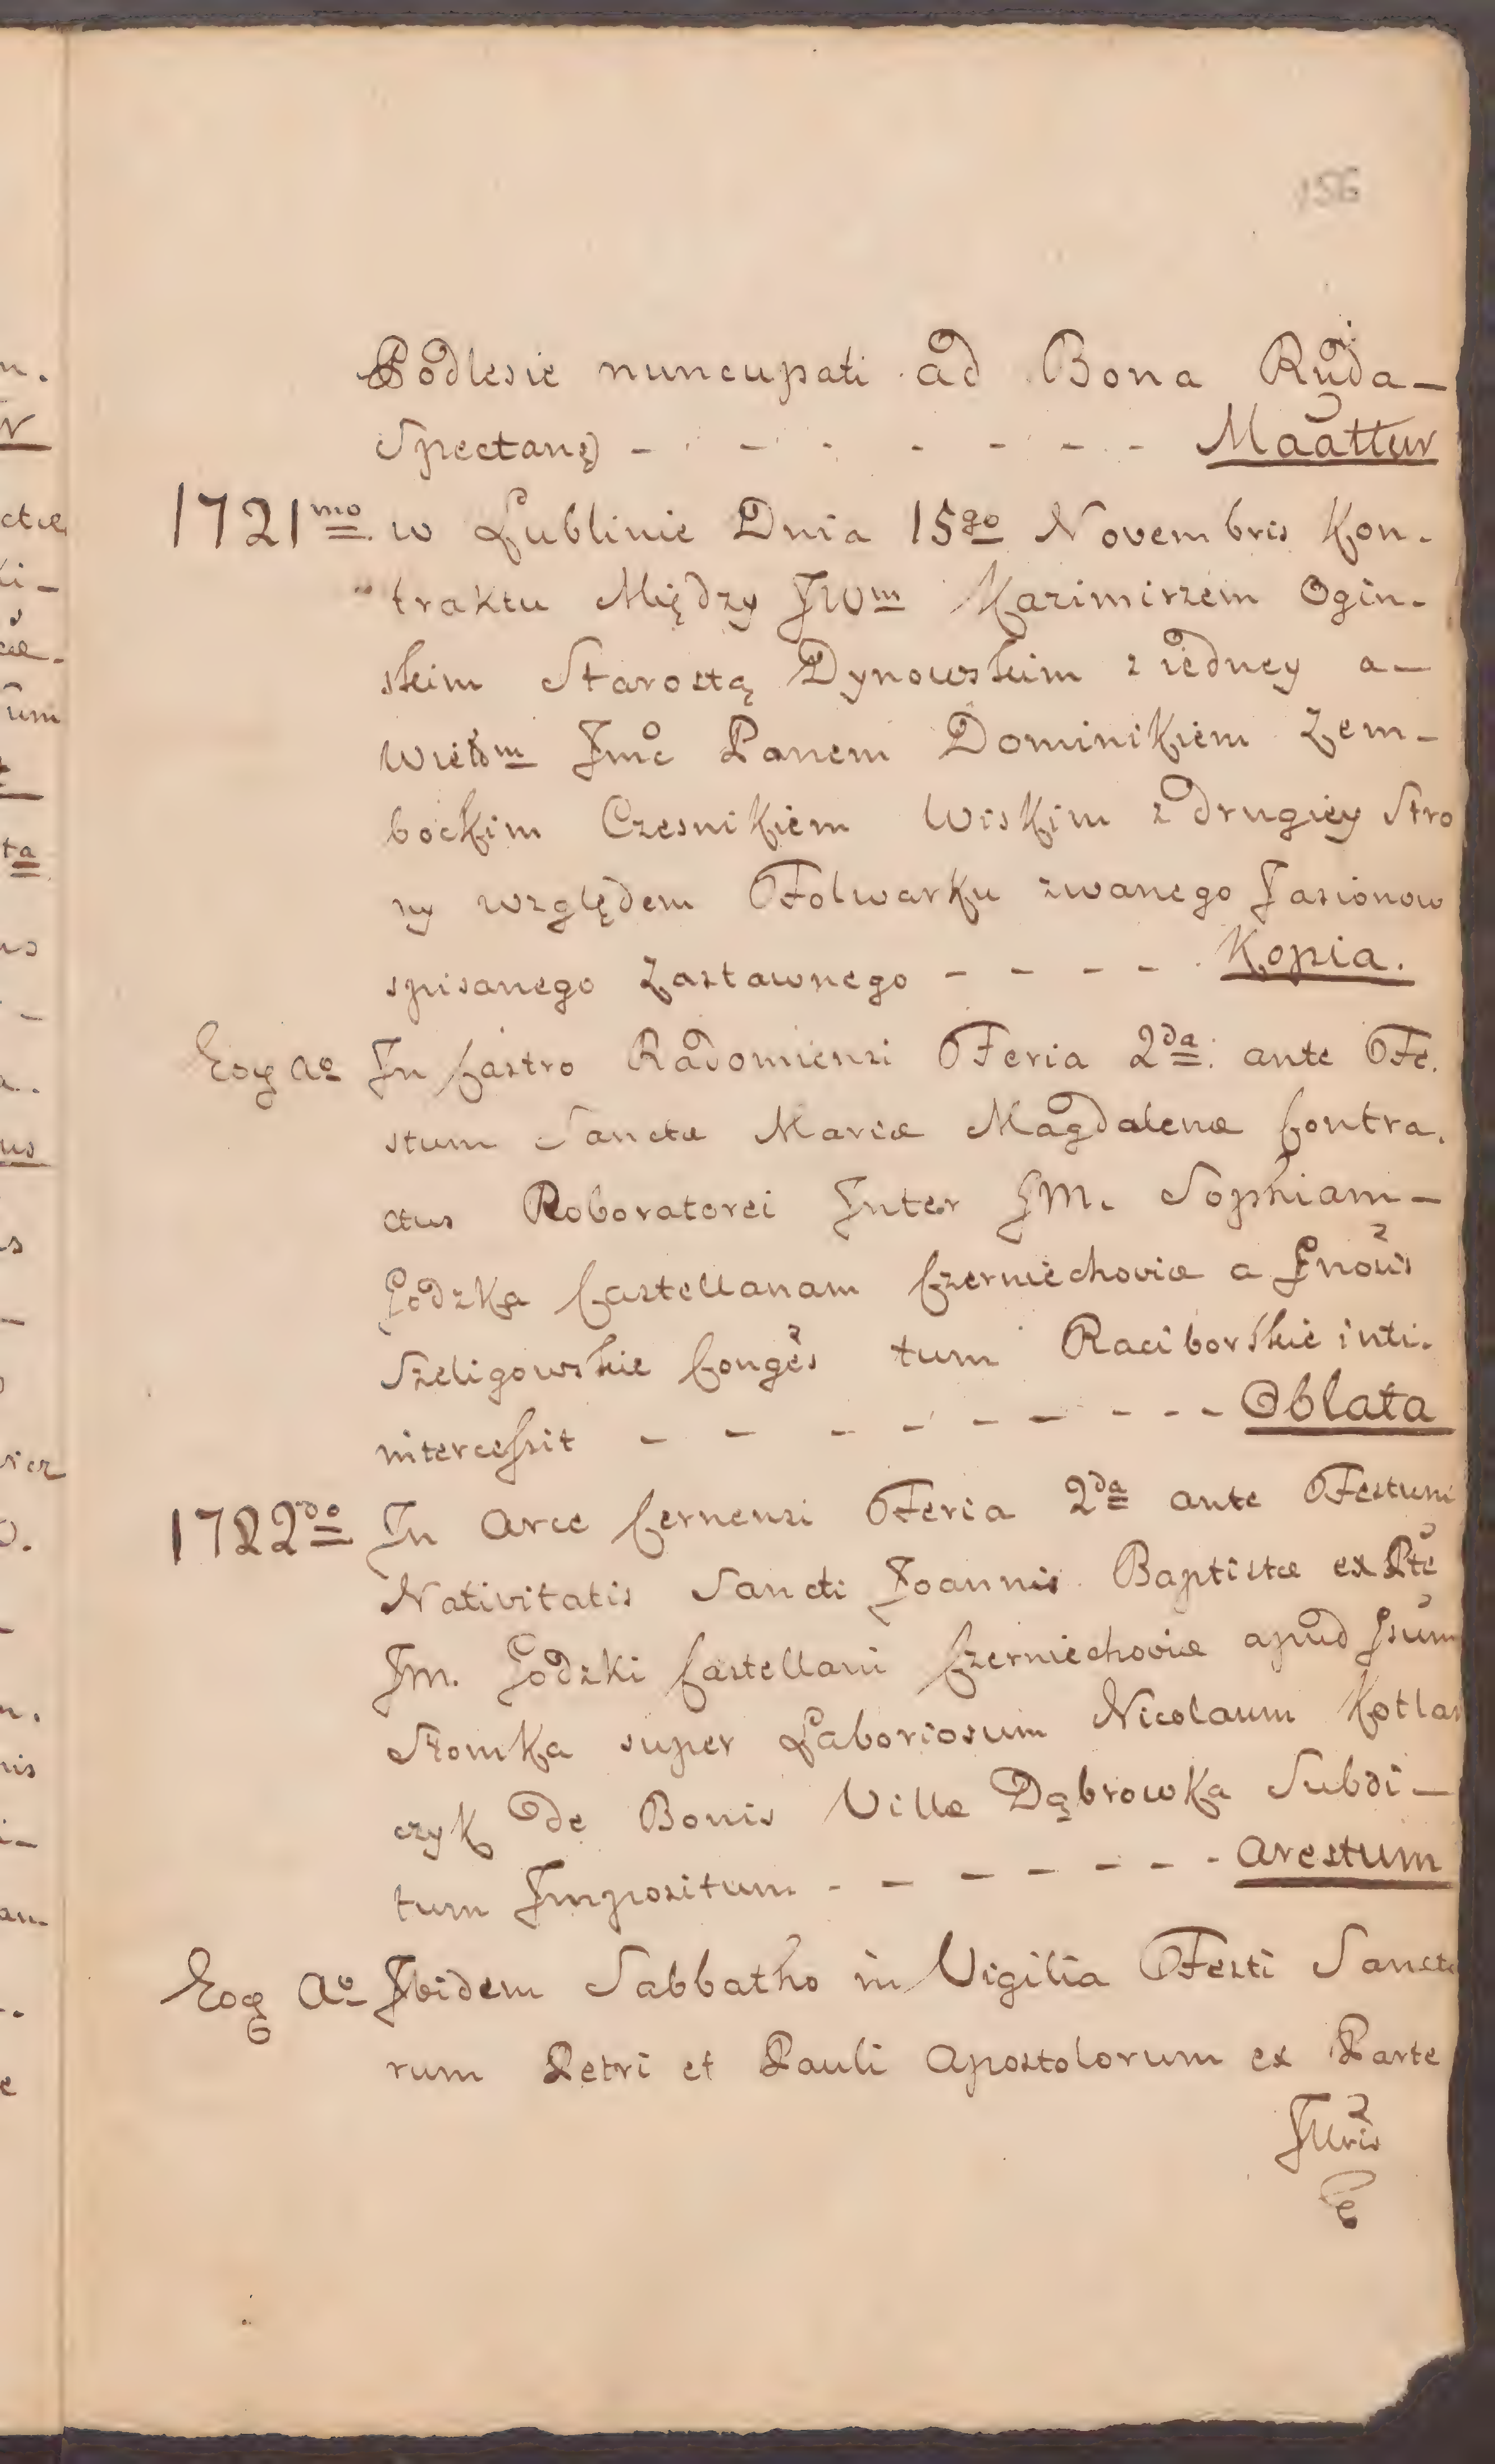 156
Podlesie nuncupati ad Bona Ruda –
Spectanę – - - - - - - Maattur
1721mo w Lublinie Dnia 15go Novembris Kon-
traktu Między JWm Kazimirzem Ogin-
skim Starostą Dynowskim z iedney a –
Wielm Jmc Panem Dominikiem Zem-
bockim Czesnikiem Wiskim z drugiey Stro
ny względem Folwarku zwanego Jasionow
spisanego Zastawnego - - - - Kopia.
Eoq Ao In Castro Radomiensi Feria 2da ante Fe.
stum Sanctæ Mariæ Magdalenæ Contra.
ctus Roboratorei Inter JM. Sophiam –
Łodzka Castellanam Czerniechoviæ a Gnou̇s
Szeligowskie Conges tum Raciborskie inti.
intercessit - - - - - - - - - Oblata
1722do In Arce Cernensi Feria 2da ante Festum
Nativitatis Sancti Joannis Baptistæ ex Pte
Jm. Łodzki Castellani Czerniechoviæ apud Jsum
Słomka super Laboriosum Nicolaum Kotlar
czyk de Bonis Villæ Dąbrowka Subdi –
tum Impositum - - - - - - - Arestum
Eoq Ao Ibidem Sabbatho in Vigilia Festi Sancto
rum Petri et Pauli Apostolorum ex Parte